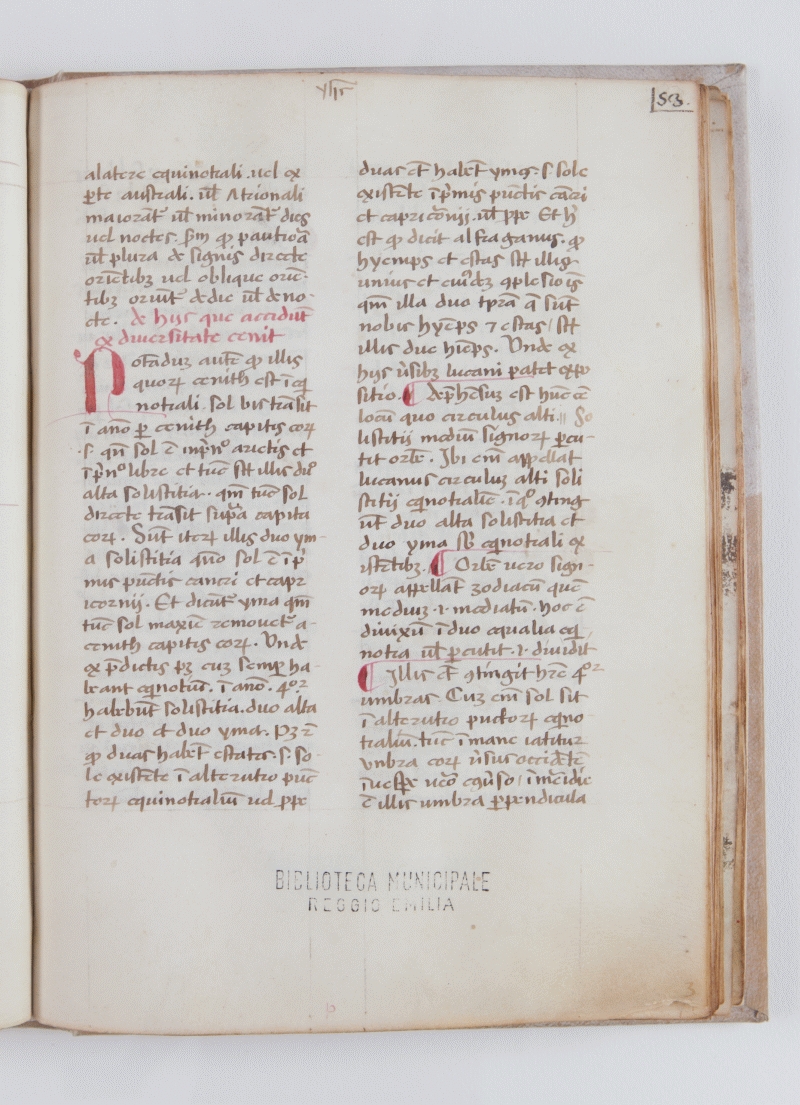 xiii
53.
a latere equinotiali . uel ex
p̄te australi . ul̄ Atrionali
maiorāt᷑ ul̄ minorāt᷑ dies
uel noctes . ꝓm ꝙ pautiōa
ul̄ plura de signis directe
oriētibꝫ uel oblique oriē-
tibꝫ oriūt᷑ de die ul̄ de no-
cte . de hijs que accidūt
ex diuersitate cenit
Notāduꝫ autē ꝙ illis
quorꝝ cenith est ī eq̄
notiali . sol bis trāsit
ī āno ꝑ cenith capitis eorꝝ
.s. qn̄ sol ē
et tūc st̄ illis
alta solistitia . qm̄ tūc sol
directe trāsit supᵃ capita
eorꝝ . Sūt iterꝝ illis duo ym-
a solistitia qn̄o sol ē ī pⁱ
mis pūctis cancri et capr
icornij . Et dicūt᷑ yma qm̄
tūc sol maxīe remouet᷑ a-
cenith capitis eorꝝ . Vnde
ex p̄dictis pꝫ cuꝫ semꝑ ha-
beant eq̄notiūꝫ . ī āno . 4ᵒʳ
habebūt solistitia . duo alta
et duo yma . Pꝫ ē
ꝙ duas habēt estates .s. so-
le existēte ī alterutro pūc
torꝝ equinotialiū uel ꝓpe
duas ēt habēt ymes .s. sole
existēte ī pⁱmis pūctis cācri
et capricōnij . ul̄ ꝓpe Et h̄
est ꝙ dicit alfraganus . ꝙ
hyemps et estas st̄ illis
unius et eiꝰdꝫ ꝯplesiōis
qm̄ illa duo tp̄ra q̄ sūt
nobis hyēps ⁊ estas / st̄
illis due hiēps . Vnde ex
hijs ūsibꝫ lucani patet expo
sitio . ¶ dep̄hēsuꝫ est hūc eē
locū quo circulus alti .|| So
listitij mediū signorꝝ ꝑcu-
tit orbē . Ibi em̄ appellat
lucanus circuluꝫ alti soli
stitij eq̄notialiē . ī qͦ ꝯting
ūt duo alta solistitia et
duo yma sb̄ eq̄notiali ex
istētibꝫ . ¶ Orbē uero sign-
orꝝ appellat zodiacū quē
mediuꝫ .i. mediatū . hoc ē
diuixū ī duo equalia eq̄
notia ul̄ ꝑcutit .i. diuidit
¶ Illis ēt ꝯtingit hr̄e 4ᵒʳ
umbras . Cuꝫ em̄ sol sit
ī alterutro puctorꝝ eq̄no
tialiū . tūc ī mane iatitur
vnbra eorꝝ ūsus occidētē
ī uesꝑe ūeo ꝯūso / ī meidie
ē illis umbra ꝑpendicula
BIBLIOTECA MUNICIPALE
REGGIO EMILIA
3